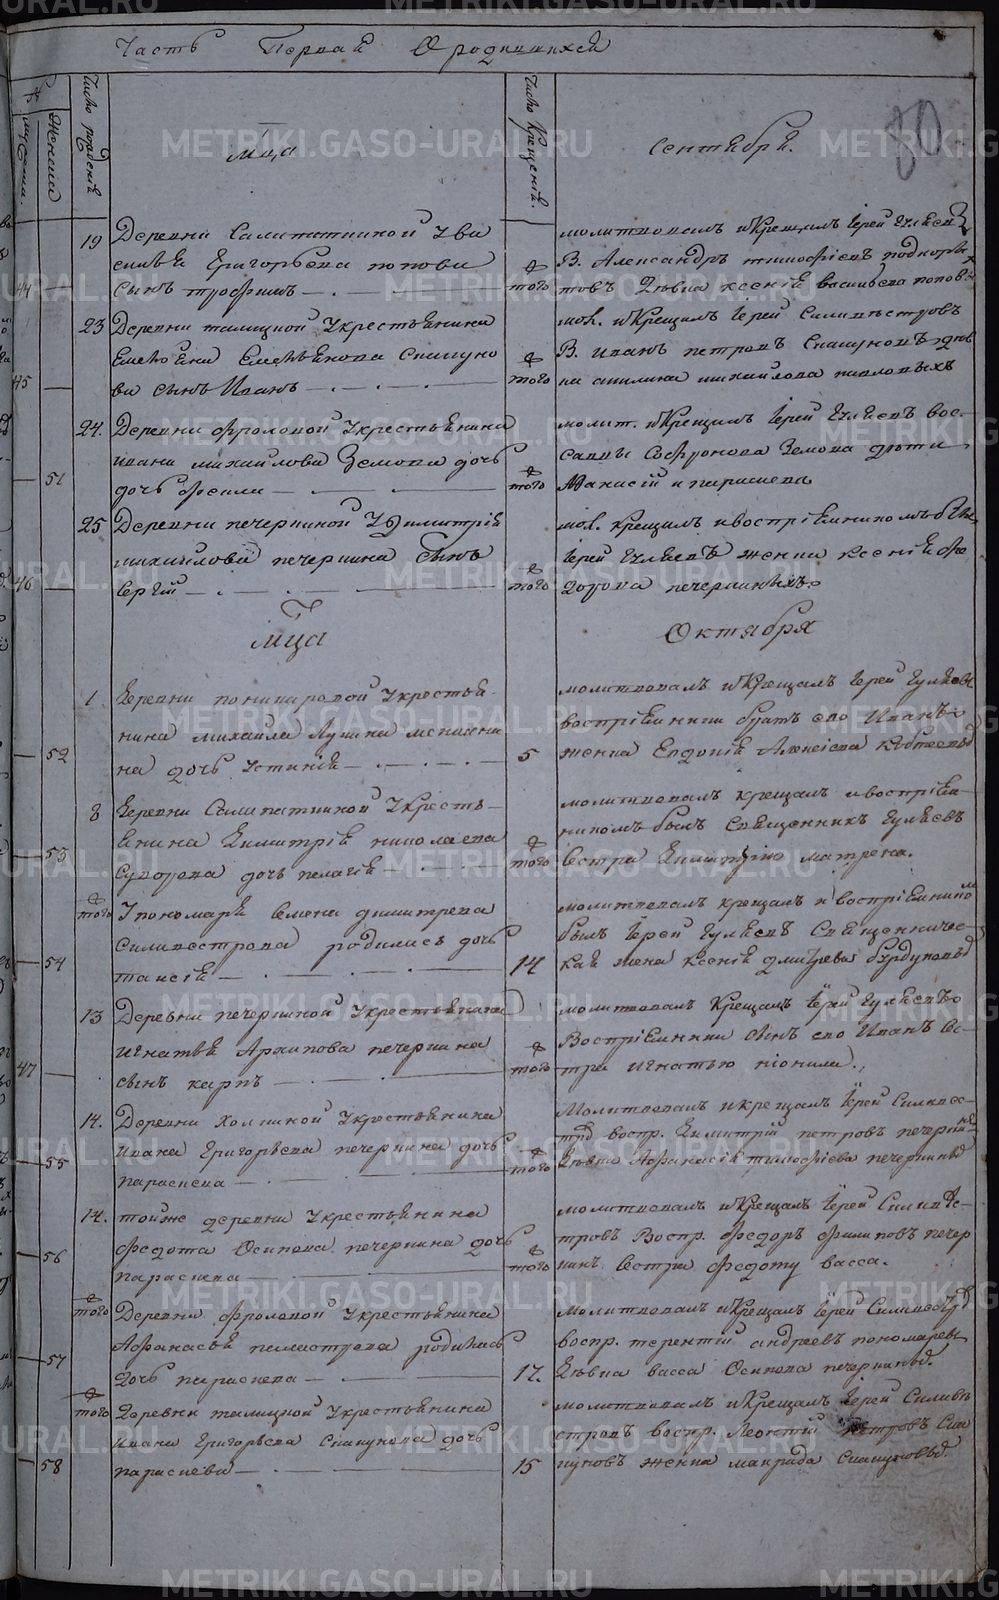 Часть Первая О родившихся
80
№
мужеска.
Женска
Число рожденій
мца
Число Крещеній.
Сентября.
44
19
Деревни Салитатинной У Ва
силья Григорьева попова
сынъ трофимъ
того
молитвовалъ и Крещалъ Іерей Гуляевъ
В. Александръ тимофеевъ подкоры
товъ Девка ксенія васильева попов
45
23
Деревни талицкой Укрестьянина
Емельяна Емельянова Спицуно
ва сынъ Иванъ
того
мол. и Крещалъ Іерей Силивестровъ
В. Иванъ петровъ дев
ка михайлова
51
24.
Деревни фроловой Укрестьянина
ивана михайлова Земова дочь
дочь
того
молит. и Крещалъ Іерей Гуляевъ вос.
саввы Софронова Земова дети
Афанасій и параскева
46
25
Деревни печеркиной У Димитрія
михайлова печеркина Сынъ
Сергій
того
мол. крещалъ и воспріемникомъ былъ
Іерей Гуляевъ женка ксенія фе
дорова печеркиныхъ.
Мца
Октября
52
1
Деревни понкиаровой Укрестья
нина михаила
на дочь Устинія
5
молитвовалъ и Крещалъ Іерей Гуляевъ
воспріемники братъ его Иванъ
женка Евдокія Алексіева
53
8
Деревни Салитатинной Укресть
янина Димитрія николаева
Суворова дочь пелагія
того
молитвовалъ крещалъ и воспріем
никомъ былъ Священникъ Гуляевъ
Сестра Димитрію матрена.
54
того
У пономаря Семена димитрева
Силивестрова родилась дочь
таисія
14
молитвовалъ крещалъ и воспріемником
былъ Іерей Гуляевъ Священничес
кая жена ксенія дмитрева
47
13
Деревни печеркиной Укрестьянина
игнатья Архипова печеркина
сынъ карпъ
того
молитвовалъ Крещалъ Іерей Гуляевъ
Воспріемники сынъ его Иванъ Сес
тра Игнатью неонила.
55
14.
Деревни Холкиной Укрестьянина
ивана Григорьева печеркина дочь
параскева
того
Молитвовалъ и крещалъ Іерей Силивес
тръ воспр. Димитрій петровъ печеркинъ
Девка Афанасія тимофеева печеркинъ
56
14.
тойже деревни Укрестьянина
федота Осипова печеркина дочь
параскева
того
молитвовалъ и Крещалъ Іерей Силивес
тровъ Воспр. федоръ филиповъ печер
кинъ Сестра федоту васса.
57
того
Деревни фроловой Укрестьянина
Афанасья родилась
дочь параскева
17.
молитвовалъ и Крещалъ Іерей Силивестр
воспр. терентій андреевъ пономаревъ
Девка васса Осипова печеркинъ.
58
того
Деревни талицкой Укрестьянина
ивана Григорьева Спицунова дочь
параскева
15
молитвовалъ и Крещалъ Іерей Силиве
стровъ воспр. Леонтій петровъ Спи
цуновъ женка маврида Спицуновы.